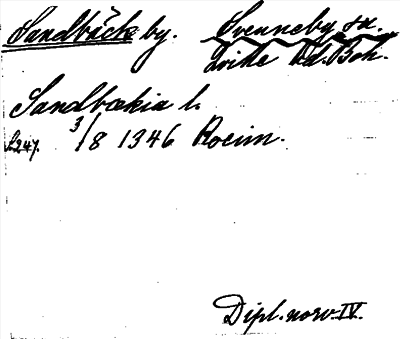 Sandbäck by. Svenneby sn.
Qville hd. Boh.
Sandbækia l.
s. 247. 3/8 1346 Roeim.
Dipl. norv. IV.